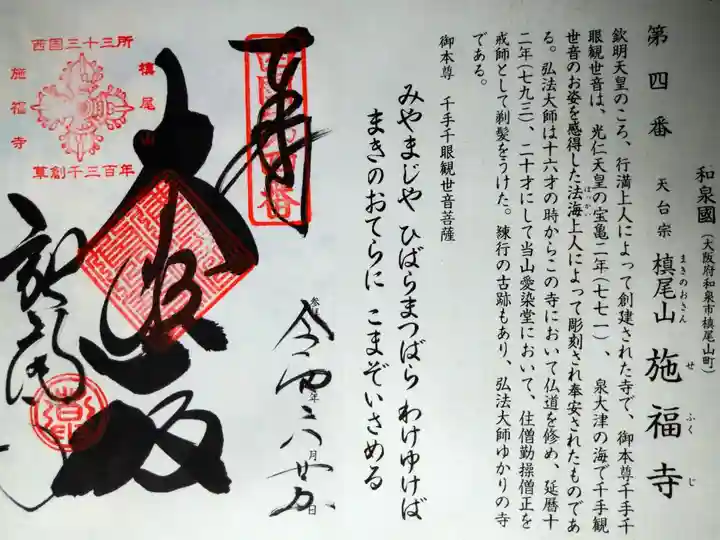 和泉國(大阪府和泉市槙尾山町)
第四番 天台宗 槙尾山 施福寺
まきのおさん せ ふく じ
欽明天皇のころ、行満上人によって創建された寺で、御本尊千手千
眼観世音は、光仁天皇の宝亀二年(七七一)、泉大津の海で千手観
世音のお姿を感得した法海上人によって彫刻され奉安されたものであ
ほっかい
る。弘法大師は十六才の時からこの寺において仏道を修め、延暦十
二年(七九三)、二十才にして当山愛染堂において、住僧勤操僧正を
戒師として剃髪をうけた。練行の古跡もあり、弘法大師ゆかりの寺
である。
御本尊 千手千眼観世音菩薩
みやまじや ひばらまつばら わけゆけば
まきのおてらに こまぞいさめる
奉拝
西国第四番
参拝 令和四年六月廿五日
大悲殿
西国三十三所
槙尾山
施福寺
草創千三百年
施福寺